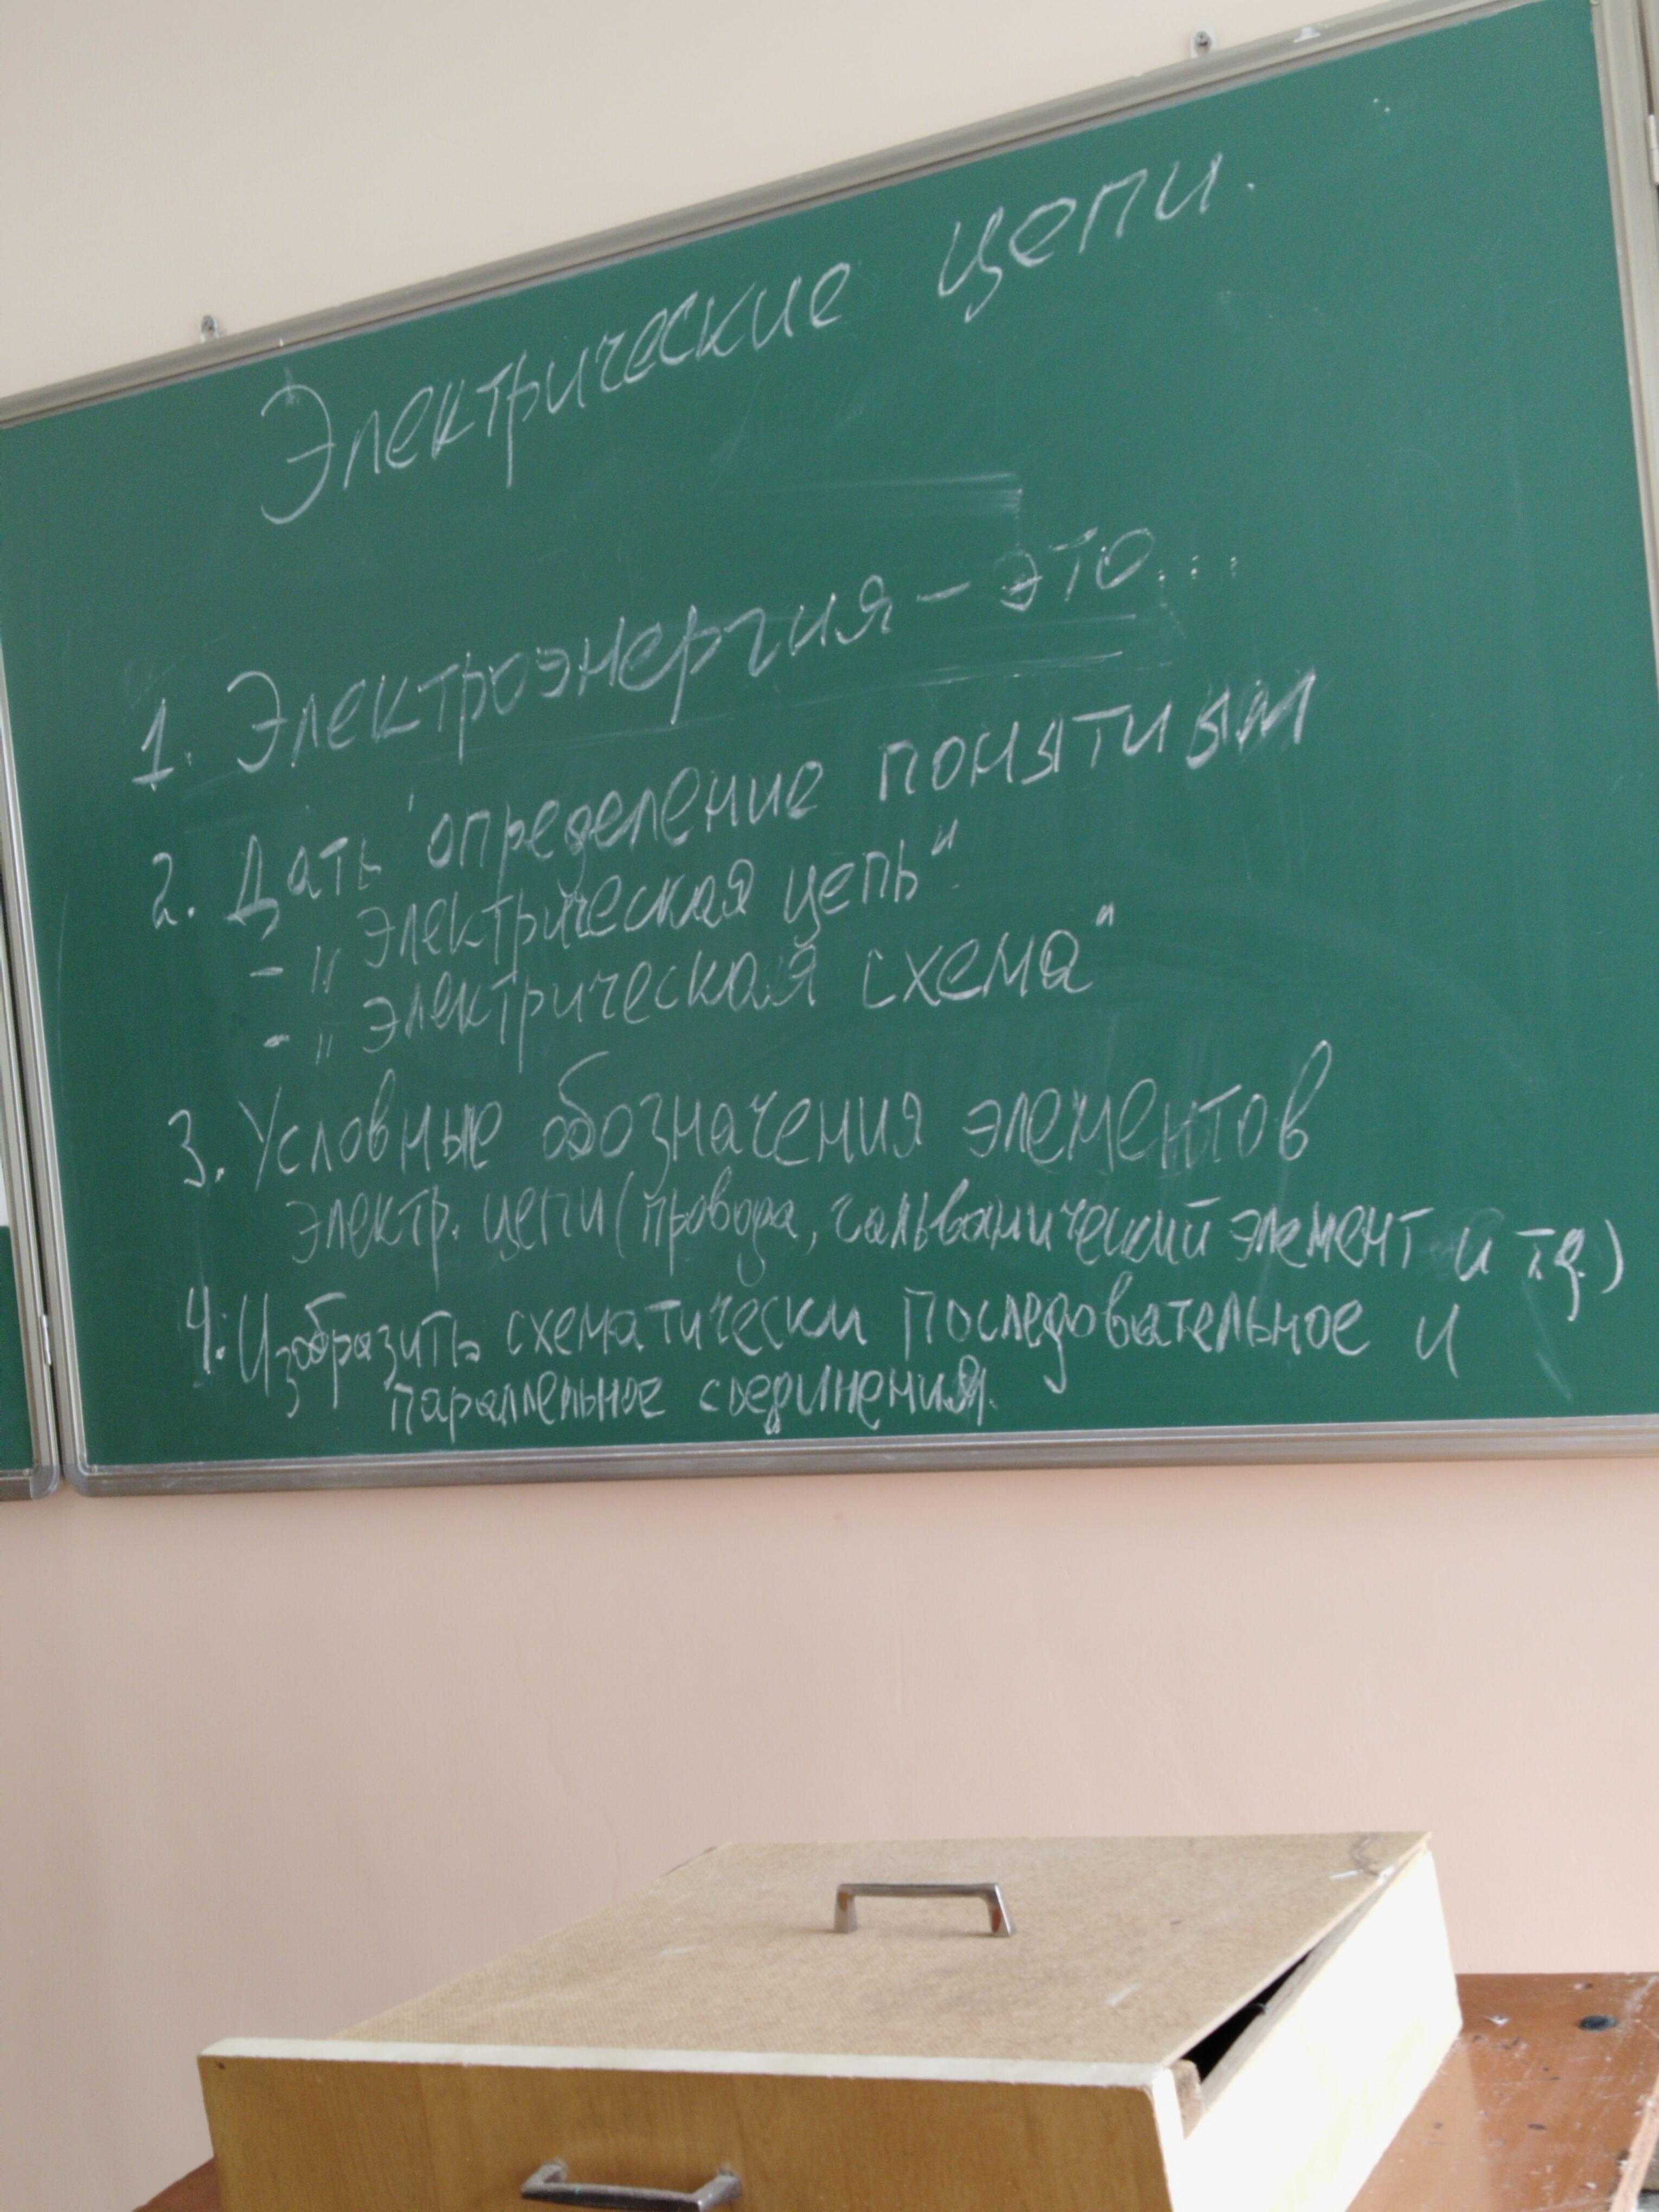 Электрические цепи.
1. Электроэнергия – это...
2. Дать определение понятиям
- „электрическая цепь“
- „электрическая схема“
3. Условные обозначения элементов
электр. цепи (провода, гальванический элемент и т.д.)
4. Изобразить схематически последовательное и
параллельное соединения.